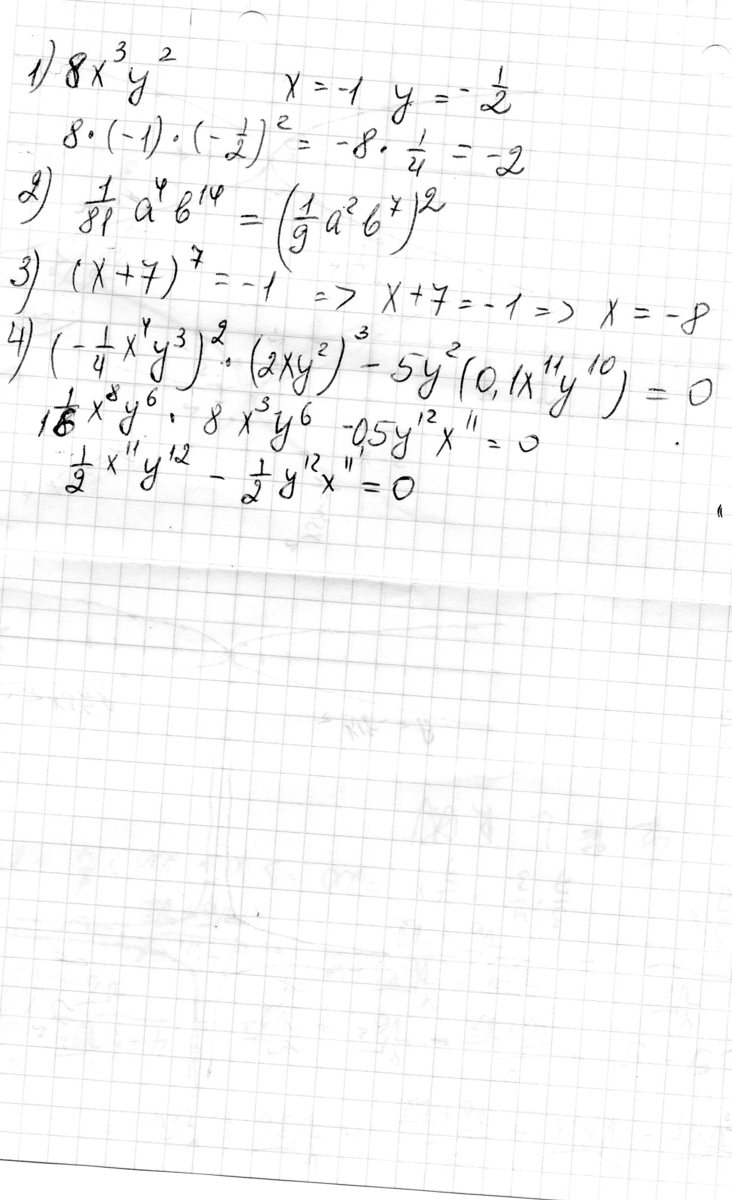 1) 8x³y² x = -1 y = -1/2
8·(-1)·(-1/2)² = -8·1/4 = -2
2) 1/81 a⁴b¹⁴ = (1/9 a²b⁷)²
3) (x+7)⁷ = -1 => x+7 = -1 => x = -8
4) (-1/4 x⁴y³)²·(2xy²)³ - 5y²(0,1x¹¹y¹⁰) = 0
1/16 x⁸y⁶ · 8x³y⁶ - 0,5y¹²x¹¹ = 0
1/2 x¹¹y¹² - 1/2 y¹²x¹¹ = 0